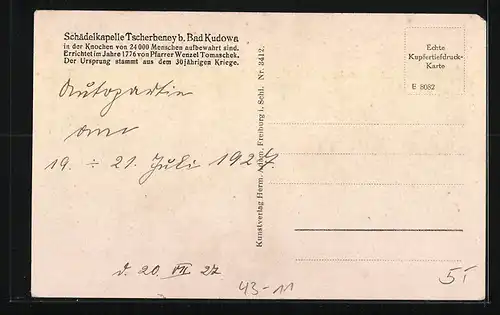 Schädelkapelle Tscherbeney b. Bad Kudowa
in der Knochen von 24 000 Menschen aufbewahrt sind.
Errichtet im Jahre 1776 von Pfarrer Wenzel Tomaschek.
Der Ursprung stammt aus dem 30jährigen Kriege.
Autopartie
am
19. ÷ 21. Juli 1927.
d. 20. VII 27
43-11
Kunstverlag Herm. Adam, Freiburg i. Schl. Nr. 3412.
Echte
Kupfertiefdruck-
Karte
E 8082
5,-